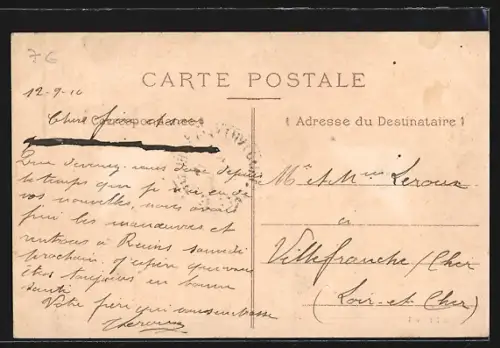 76
CARTE POSTALE
12-9-10
Correspondance
Adresse du Destinataire
Chère
Que devenez-vous donc depuis
le temps que je n'ai eu de
vos nouvelles, nous avons
fini les manœuvres et
rentrons à Reims samedi
prochain. J'espère que vous
êtes toujours en bonne
santé
Votre frère qui vous embrasse
Leroux
Mr et Mme Leroux
à
Villefranche / Cher
(Loir-et-Cher)